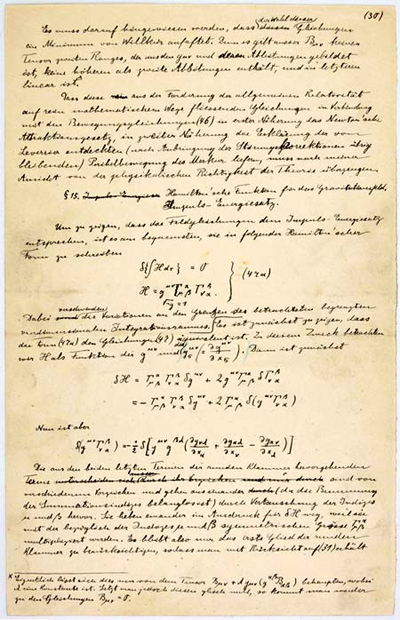 (30)
Es muss darauf hingewiesen werden, dass der Wahl dieser Gleichungen
ein Minimum von Willkür anhaftet. Denn es gibt ausser Bμν keinen
Tensor zweiten Ranges, der aus den gμν und deren Ableitungen gebildet
ist, keine höheren als zweite Ableitungen enthält, und in letzteren
linear ist.*
Dass diese aus der Forderung der allgemeinen Relativität
auf rein mathematischem Wege fliessenden Gleichungen in Verbindung
mit den Bewegungsgleichungen (46) in erster Näherung das Newton'sche
Attraktionsgesetz, in zweiter Näherung die Erklärung der von
Leverrier entdeckten (nach Anbringung der Störungskorrektionen übrig
bleibenden) Perihelbewegung des Merkur liefern, muss nach meiner
Ansicht von der physikalischen Richtigkeit der Theorie überzeugen.
§ 15. Hamilton'sche Funktion für das Gravitationsfeld,
Impuls-Energiesatz.
Um zu zeigen, dass die Feldgleichungen dem Impuls-Energiesatz
entsprechen, ist es am bequemsten, sie in folgender Hamilton'scher
Form zu schreiben
δ{∫H dτ} = 0
H = g^μν Γ^α_μβ Γ^β_να
√-g = 1
} (47a)
Dabei verschwinden die Variationen an den Grenzen des betrachteten begrenzten
vierdimensionalen Integrationsraumes. Es ist zunächst zu zeigen, dass
die Form (47a) den Gleichungen (47) äquivalent ist. Zu diesem Zweck betrachten
wir H als Funktion der g^μν und g^μν_σ (= ∂g^μν/∂x_σ). Dann ist zunächst
δH = Γ^α_μβ Γ^β_να δg^μν + 2 g^μν Γ^α_μβ δΓ^β_να
= - Γ^α_μβ Γ^β_να δg^μν + 2 Γ^α_μβ δ(g^μν Γ^β_να)
Nun ist aber
δ(g^μν Γ^β_να) = -½ δ[g^μν g^βλ (∂g_νλ/∂x_α + ∂g_αλ/∂x_ν - ∂g_αν/∂x_λ)]
Die aus den beiden letzten Termen der runden Klammer hervorgehenden
Terme sind von
verschiedenem Vorzeichen und gehen auseinander (da die Benennung
der Summationsindizes belanglos ist) durch Vertauschung der Indizes
μ und β hervor. Sie heben einander im Ausdruck für δH weg, weil sie
mit der bezüglich der Indizes μ und β symmetrischen Grösse Γ^α_μβ
multipliziert werden. Es bleibt also nur das erste Glied der runden
Klammer zu berücksichtigen, sodass man mit Rücksicht auf (31) erhält
* Eigentlich lässt sich dies nur von dem Tensor Bμν + λ gμν (g^αβ Bαβ) behaupten, wobei
λ eine Konstante ist. Setzt man jedoch diesen gleich null, so kommt man wieder
zu den Gleichungen Bμν = 0.